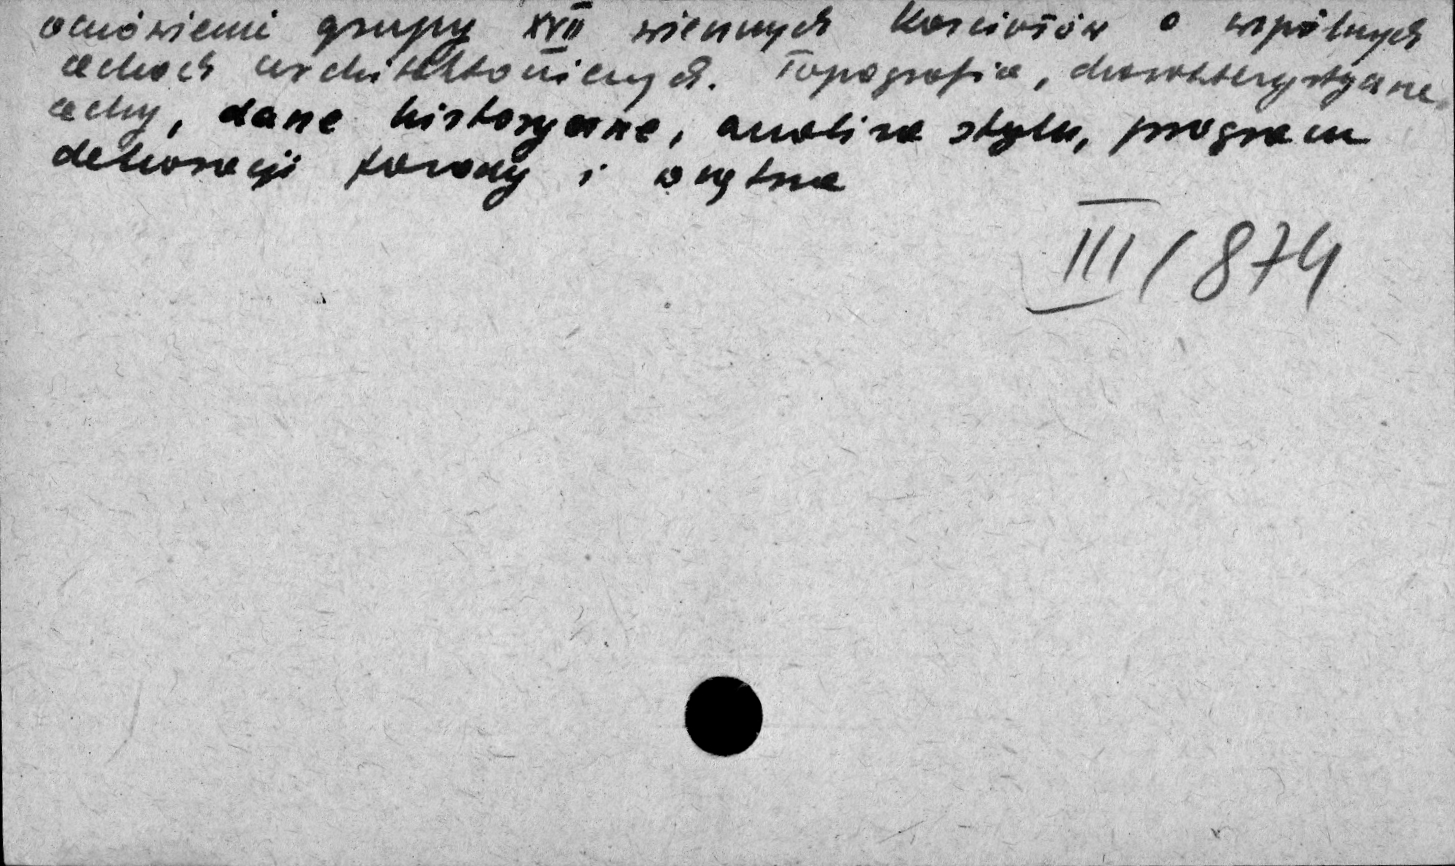 omówienie grupy XVII wiecznych kościołów o wspólnych
cechach architektonicznych. Topografia, charakterystyczne
cechy, dane historyczne, analiza stylu, program
dekoracji fasady i wnętrza
III/874